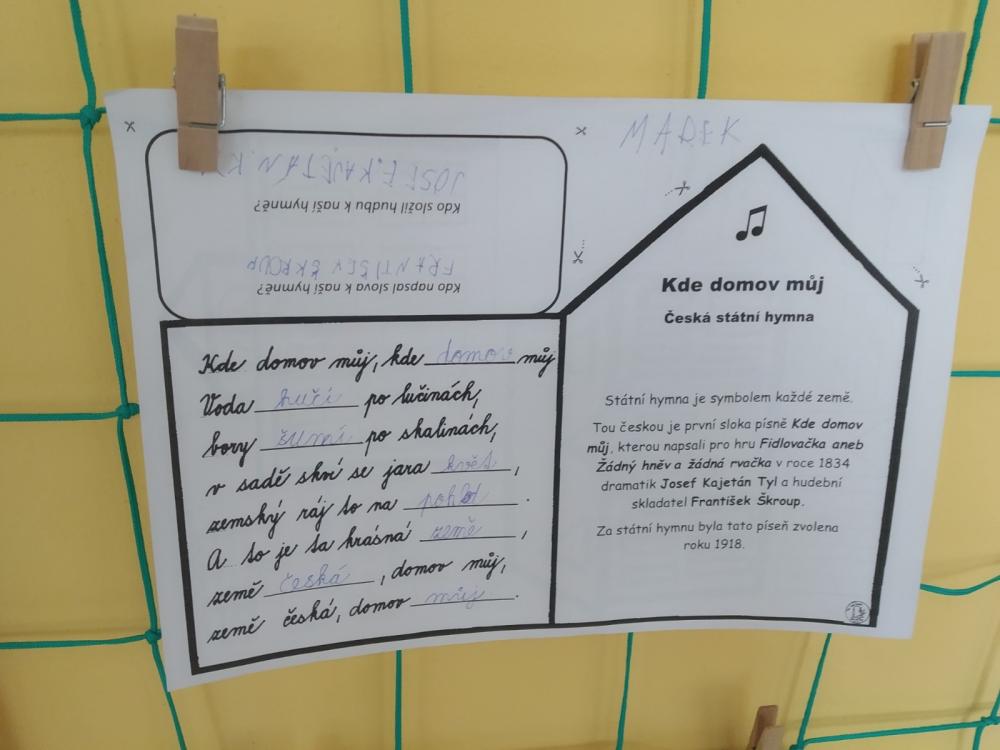 MAREK
Kdo napsal slova k naší hymně?
FRANTIŠEK ŠKROUP
Kdo složil hudbu k naší hymně?
JOSEF KAJETÁN
Kde domov můj, kde domov můj
Voda hučí po lučinách,
bory šumí po skalinách,
v sadě skví se jara květ,
zemský ráj to na pohled.
A to je ta krásná země,
země česká, domov můj,
země česká, domov můj.
Kde domov můj
Česká státní hymna
Státní hymna je symbolem každé země.
Tou českou je první sloka písně Kde domov
můj, kterou napsali pro hru Fidlovačka aneb
Žádný hněv a žádná rvačka v roce 1834
dramatik Josef Kajetán Tyl a hudební
skladatel František Škroup.
Za státní hymnu byla tato píseň zvolena
roku 1918.